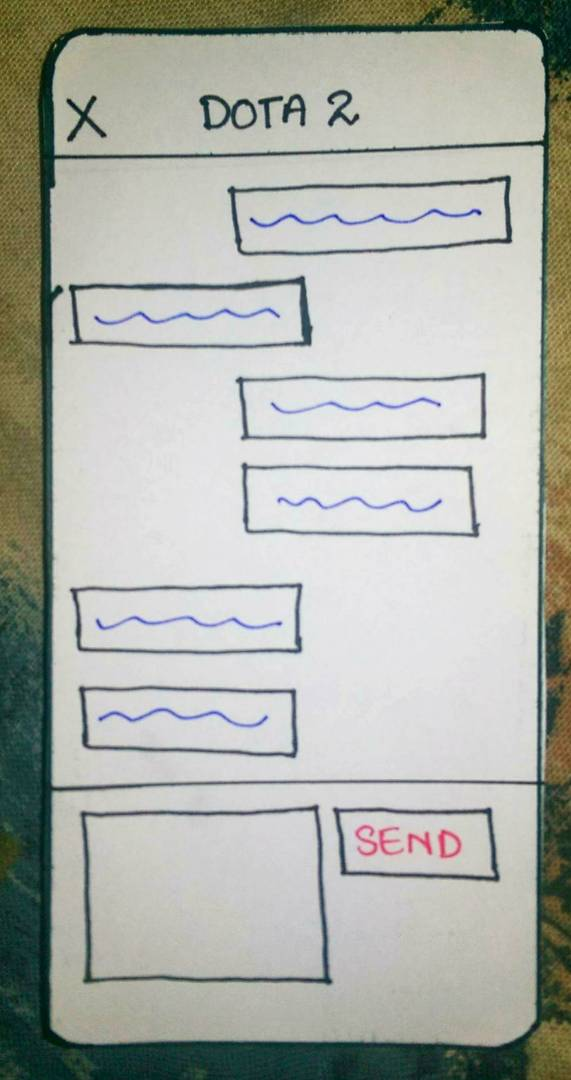 X DOTA 2
SEND